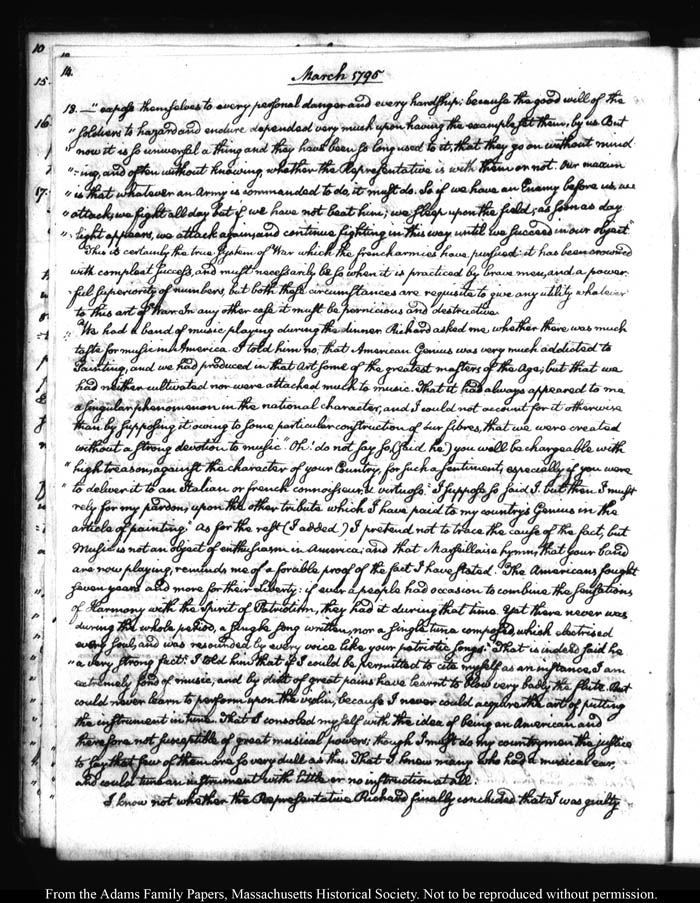 10
15.
16.
17.
14.
March 1795
18. — " expose themselves to every personal danger and every hardship; because the good will of the
" soldiers to hazard and endure depended very much upon having the example set them, by us. But
" now it is so universal a thing and they have been so long used to it, that they go on without mind-
"-ing, and often without knowing, whether the Representative is with them or not. Our maxim
" is that whatever an Army is commanded to do, it must do. So if we have an Enemy before us, we
" attack; we fight all day but if we have not beat him; we sleep upon the field; as soon as day
" light appears, we attack again; and continue fighting in this way until we succeed in our object."
This is certainly the true system of War which the french armies have pursued: it has been crowned
with compleat success, and must necessarily be so when it is practiced by brave men, and a power-
ful superiority of numbers, but both these circumstances are requisite to give any utility whatever
to this art of War. In any other case it must be pernicious and destructive.
We had a band of music playing during the dinner. Richard asked me whether there was much
taste for music in America. I told him no; that American Genius was very much addicted to
Painting, and we had produced in that Art some of the greatest masters of the Age; but that we
had neither cultivated nor were attached much to music. That it had always appeared to me
a singular phenomenon in the national character, and I could not account for it otherwise
than by supposing it owing to some particular construction of our fibres, that we were created
without a strong devotion to music. "Oh! do not say so, (said he) you will be chargeable with
" high treason, against the character of your Country, for such a sentiment, especially if you were
" to deliver it to an Italian or french connoisseur, & virtuoso." I suppose so said I. but then I must
rely for my pardon, upon the other tribute which I have paid to my country's Genius in the
article of painting. As for the rest (I added) I pretend not to trace the cause of the fact, but
Music is not an object of enthusiasm in America; and that Marseillaise hymn, that your band
are now playing, reminds me of a forcible proof of the fact I have stated. The Americans fought
seven years and more for their Liberty: if ever a people had occasion to combine the sensations
of Harmony with the spirit of Patriotism, they had it during that time. Yet there never was
during the whole period, a single song written, nor a single tune composed, which electrised
every soul, and was resounded by every voice like your patriotic songs. "That is indeed said he
" a very strong fact." I told him that if I could be permitted to cite myself as an instance, I am
extremely fond of music, and by dint of great pains have learnt to blow very badly the flute. But
could never learn to perform upon the violin, because I never could acquire the art of putting
the instrument in tune. That I consoled myself with the idea of being an American and
therefore not susceptible of great musical powers; though I must do my countrymen the justice
to say that few of them are so very dull as this. That I knew many who had a musical ear,
and could tune an instrument with little or no instruction at all.
I know not whether the Representative Richard finally concluded that I was guilty
From the Adams Family Papers, Massachusetts Historical Society. Not to be reproduced without permission.